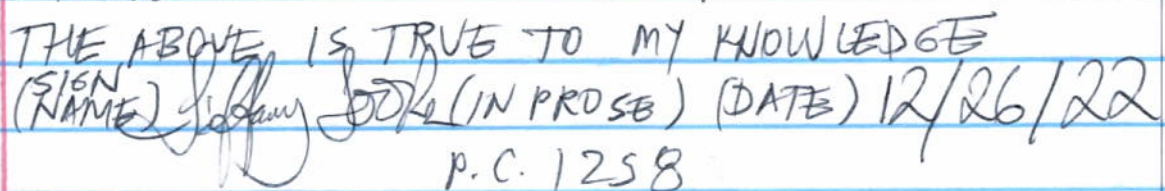 THE ABOVE IS TRUE TO MY KNOWLEDGE
(SIGN NAME) Tiffany (IN PROSE) (DATE) 12/26/22
P.C. 1258